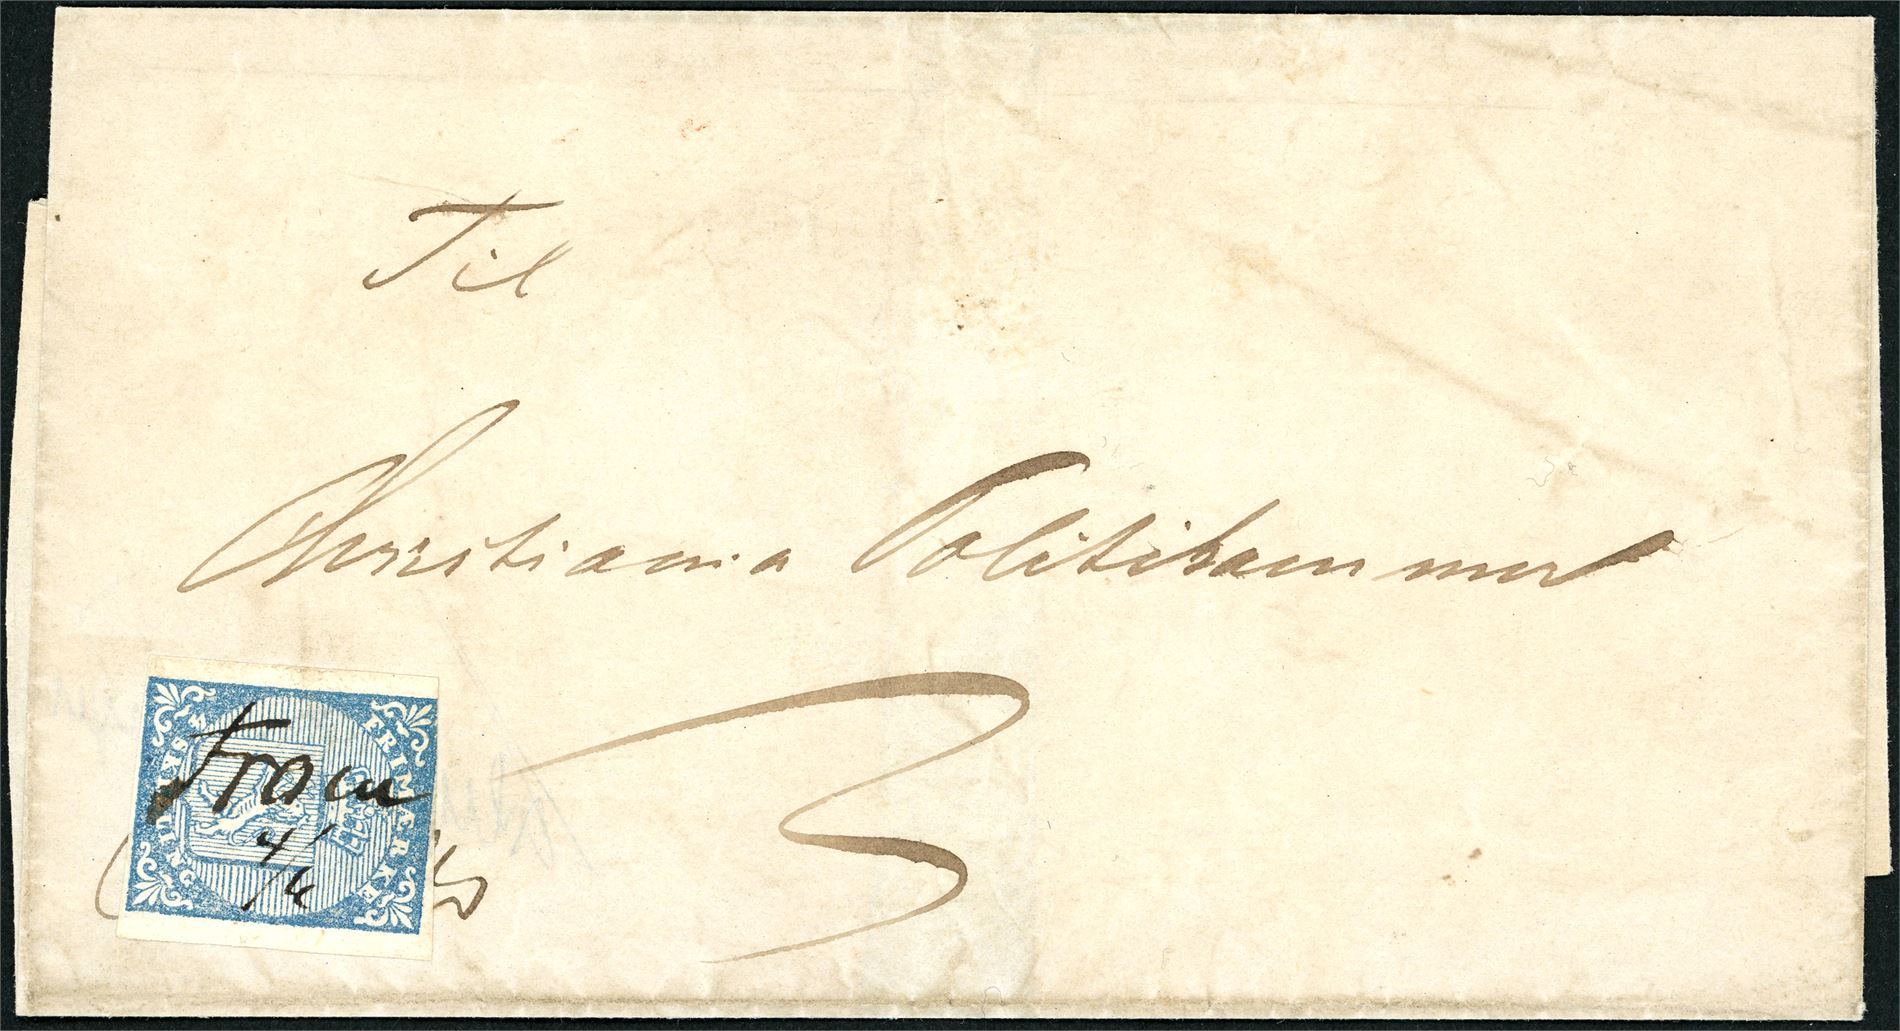 Til
Christiania Politikammer
3
FRIMÆRKE
4 SKILLING
Fron
4/6